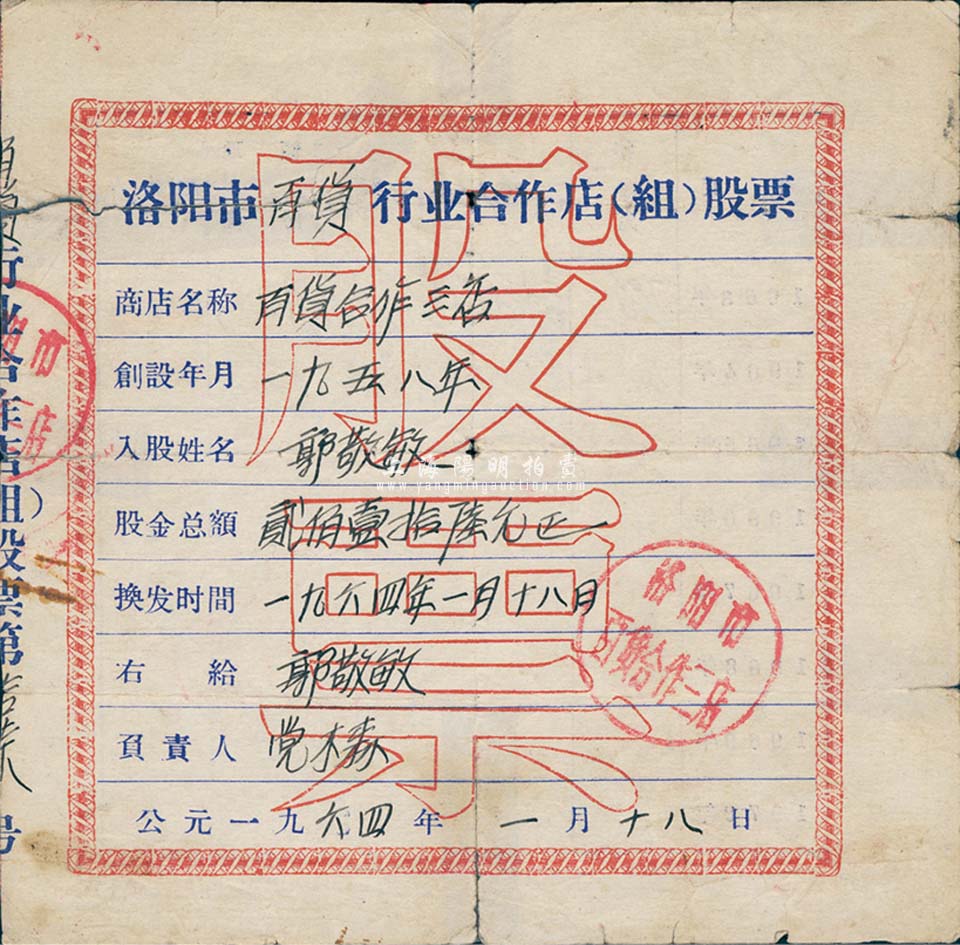 股票
洛阳市百貨行业合作店(組)股票
商店名称 百貨合作三店
創設年月 一九五八年
入股姓名 郭敬敏
股金总額 貳佰壹拾陸元正
换发时間 一九六四年一月十八日
右給 郭敬敏
頁責人 党木森
公元一九六四年一月十八日
洛阳市
百货合作三店
上海陽明拍賣
www.yangmingauctions.com
行业合作店組)股票第
号